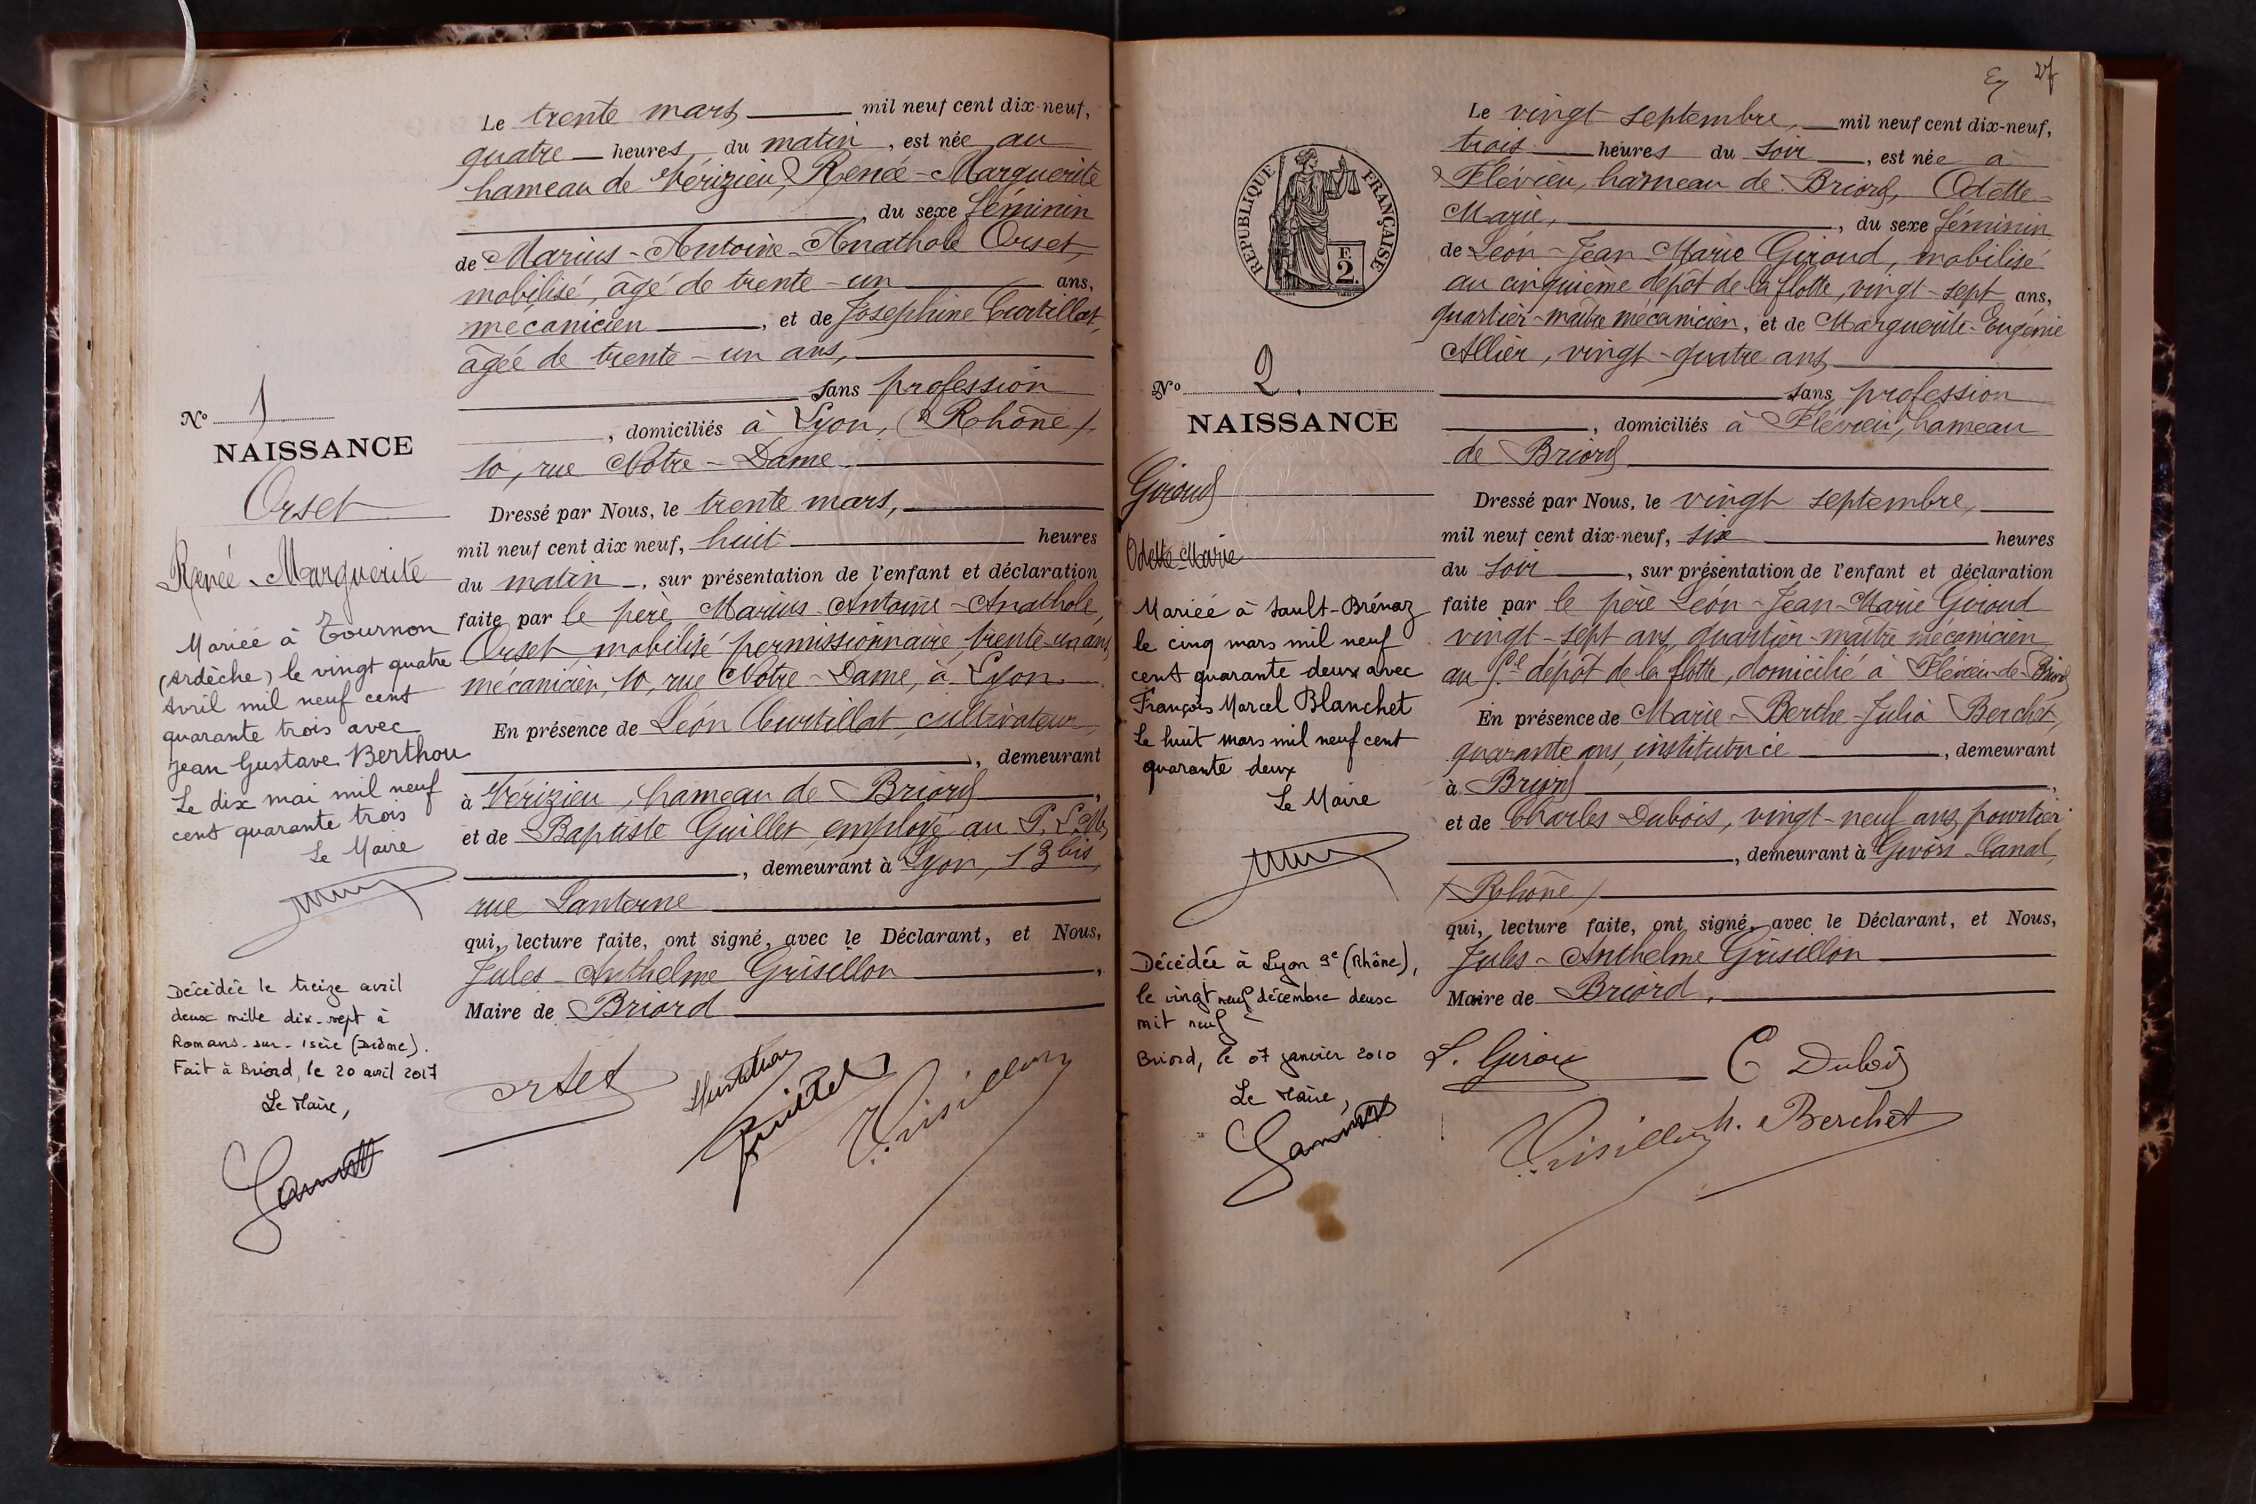 Le trente mars mil neuf cent dix-neuf,
quatre heures du matin, est née au
hameau de Vérizieu, Renée-Marguerite
, du sexe féminin
de Marius-Antoine-Anathole Orset,
mobilisé, âgé de trente-un ans,
mécanicien, et de Joséphine Curtillat,
âgée de trente-un ans,
sans profession
, domiciliés à Lyon, (Rhône),
10, rue Notre-Dame
Dressé par Nous, le trente mars,
mil neuf cent dix neuf, huit heures
du matin, sur présentation de l'enfant et déclaration
faite par le père Marius-Antoine-Anathole,
Orset, mobilisé permissionnaire, trente-un ans,
mécanicien, 10, rue Notre-Dame, à Lyon
En présence de Léon Curtillat, cultivateur,
, demeurant
à Vérizieu, hameau de Briord,
et de Baptiste Guillet, employé au P.L.M.,
, demeurant à Lyon, 13 bis,
rue Lanterne
qui, lecture faite, ont signé, avec le Déclarant, et Nous,
Jules-Anthelme Grisillon,
Maire de Briord
Orset
Guillet
Grisillon
No 1
NAISSANCE
Orset
Renée-Marguerite
Mariée à Tournon
(Ardèche) le vingt quatre
Avril mil neuf cent
quarante trois avec
Jean Gustave Berthou
Le dix mai mil neuf
cent quarante trois
Le Maire
Décédée le treize avril
deux mille dix-sept à
Romans-sur-Isère (Drôme).
Fait à Briord, le 20 avril 2017
Le Maire,
27
REPUBLIQUE FRANÇAISE
F.
2.
No 2.
NAISSANCE
Giroud
Odette-Marie
Mariée à Sault-Brénaz
le cinq mars mil neuf
cent quarante deux avec
François Marcel Blanchet
Le huit mars mil neuf cent
quarante deux
Le Maire
Décédée à Lyon 9e (Rhône),
le vingt neuf décembre deux
mil neuf
Briord, le 07 janvier 2010
Le Maire,
Le vingt septembre, mil neuf cent dix-neuf,
trois heures du soir, est née à
Flévieu, hameau de Briord, Odette-
Marie, , du sexe féminin
de Léon-Jean-Marie Giroud, mobilisé
au cinquième dépôt de la flotte, vingt-sept ans,
quartier-maître mécanicien, et de Marguerite-Eugénie
Allier, vingt-quatre ans,
sans profession
, domiciliés à Flévieu, hameau
de Briord
Dressé par Nous, le vingt septembre,
mil neuf cent dix-neuf, six heures
du soir, sur présentation de l'enfant et déclaration
faite par le père Léon-Jean-Marie Giroud
vingt-sept ans, quartier-maître mécanicien
au 5e dépôt de la flotte, domicilié à Flévieu-de-Briord
En présence de Marie-Berthe-Julia Berchet,
quarante ans, institutrice, demeurant
à Briord,
et de Charles Dubois, vingt-neuf ans,
, demeurant à Givors-Canal,
(Rhône)
qui, lecture faite, ont signé, avec le Déclarant, et Nous,
Jules-Anthelme Grisillon
Maire de Briord,
L. Giroud
C Dubois
Grisillon
M. Berchet